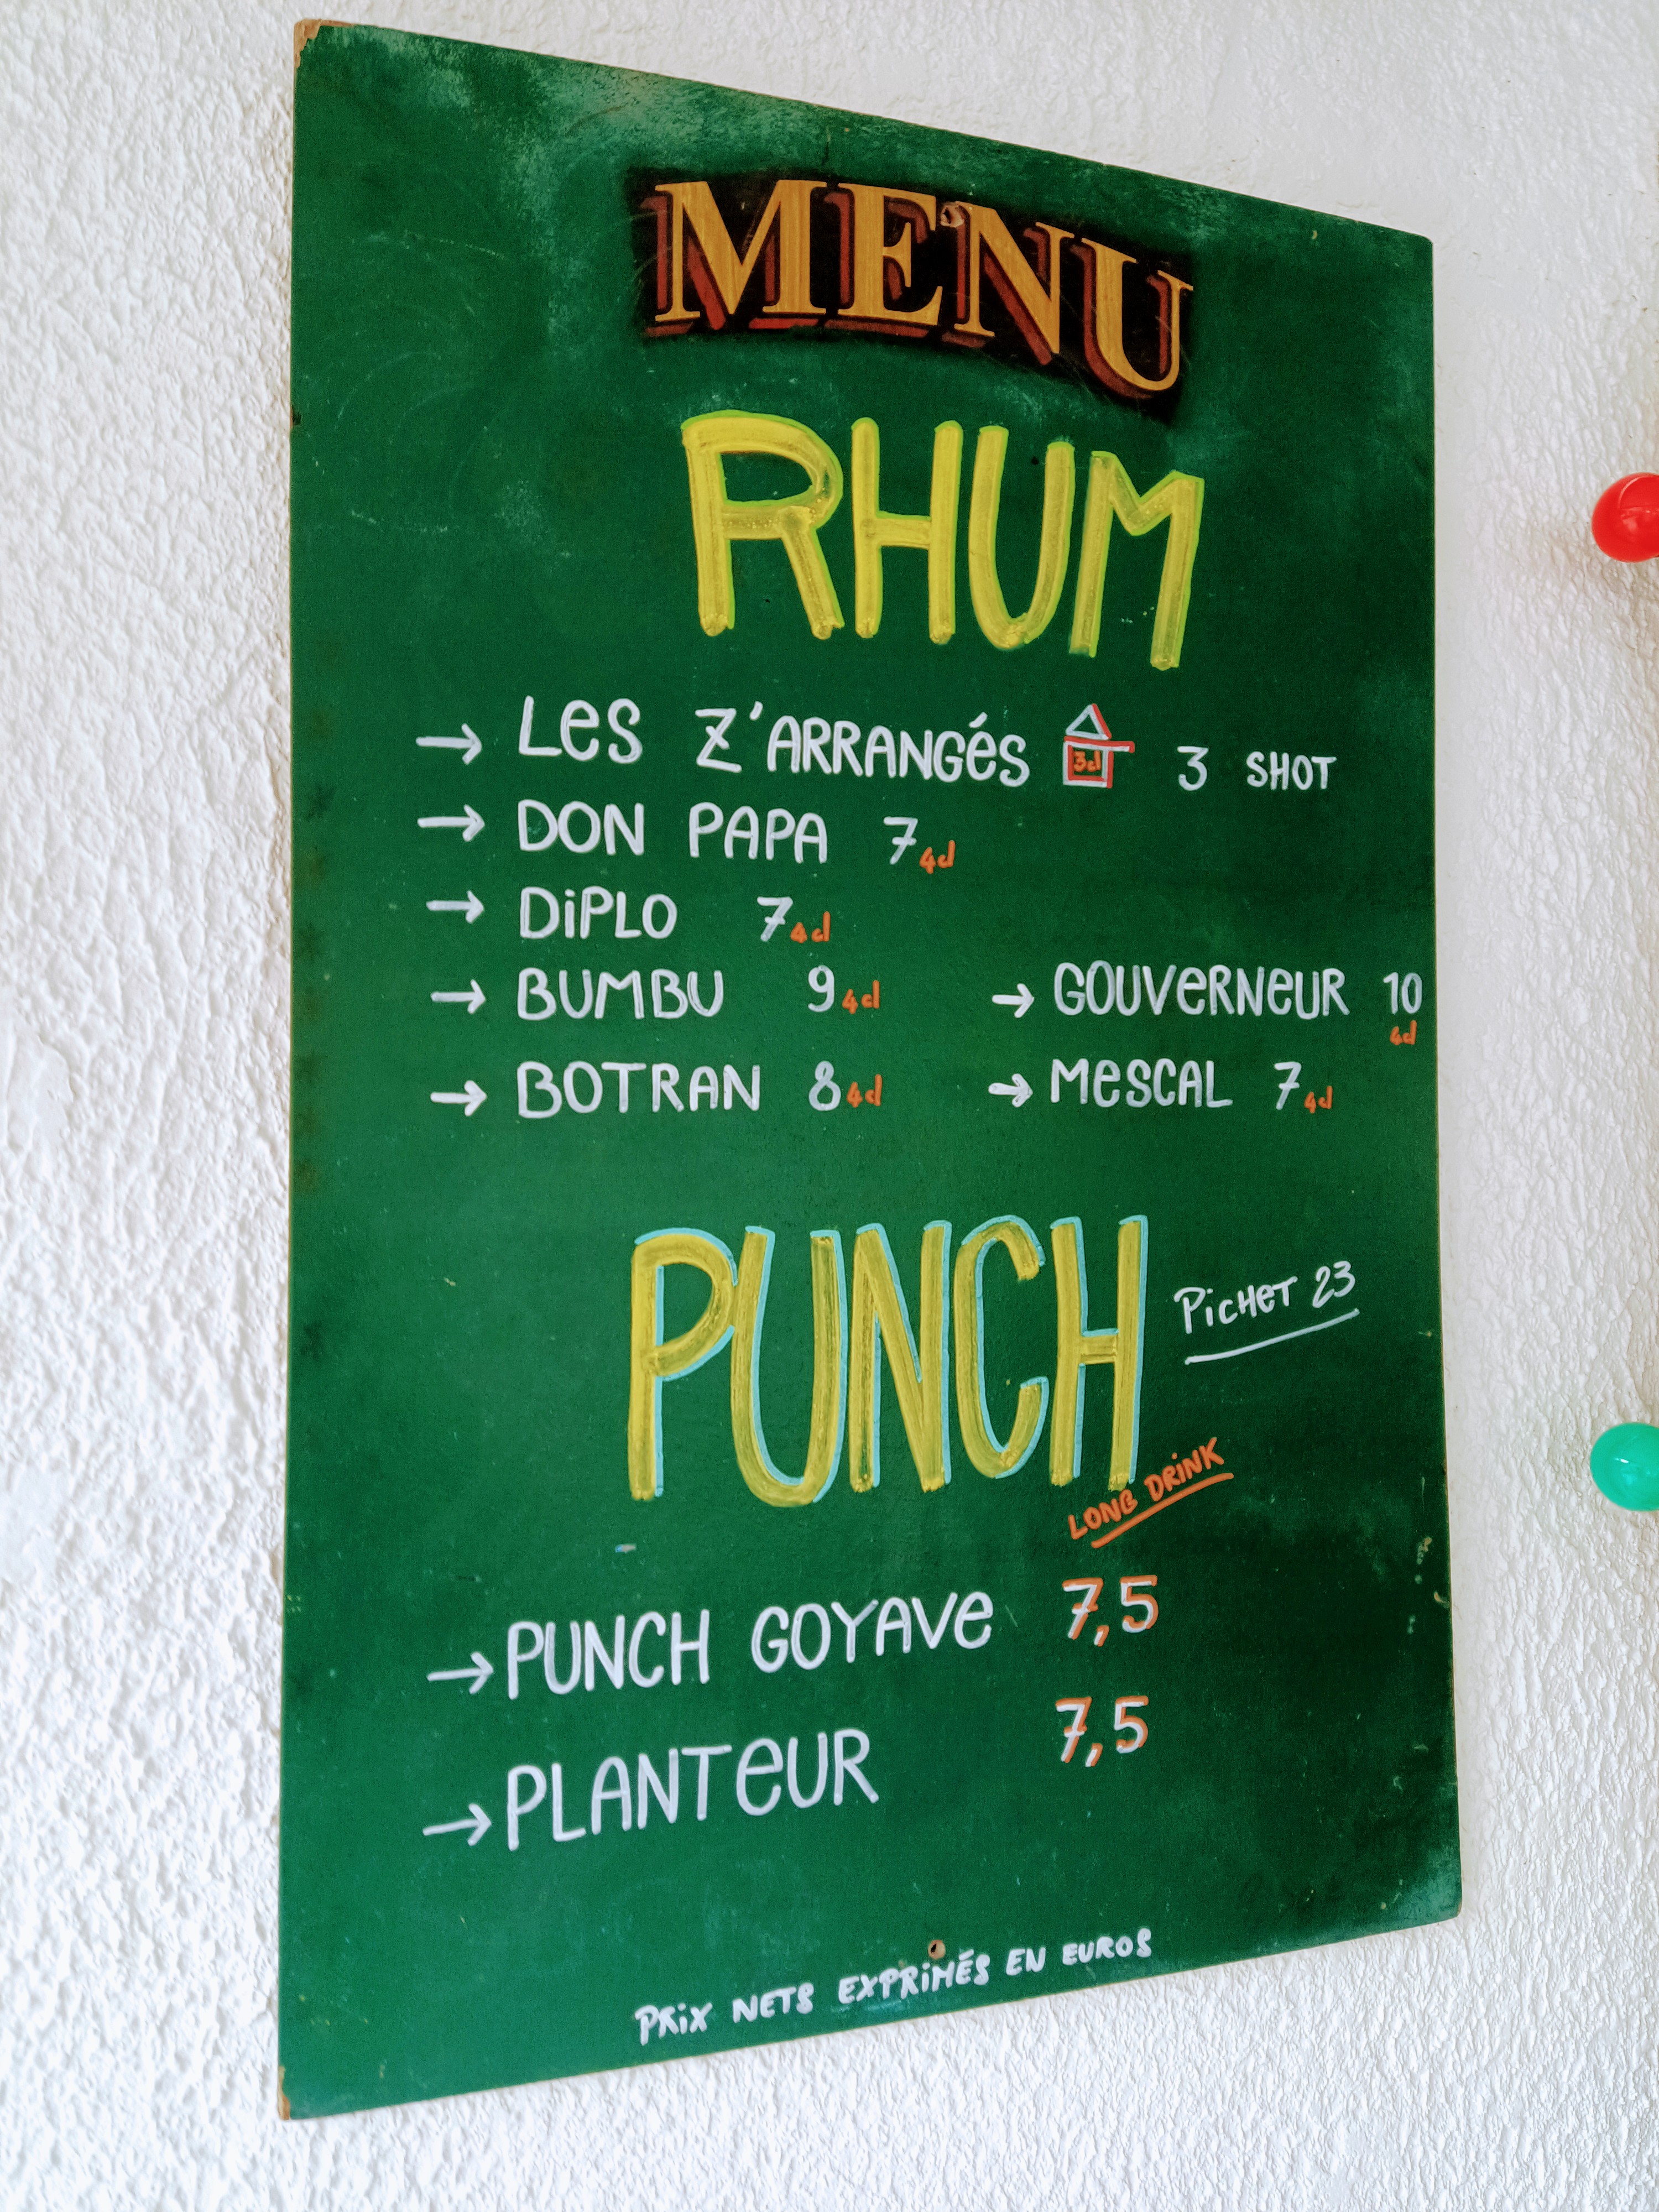 MENU
RHUM
→ Les Z'ARRANGés 3cl 3 SHOT
→ DON PAPA 7 4cl
→ DiPLO 7 4cl
→ BUMBU 9 4cl → GOUVeRNeUR 10 4cl
→ BOTRAN 8 4cl → MeSCAL 7 4cl
PUNCH Pichet 23
LONG DRiNK
→ PUNCH GOYAVe 7,5
→ PLANTeUR 7,5
PRiX NETS EXPRiMÉS EN EUROS